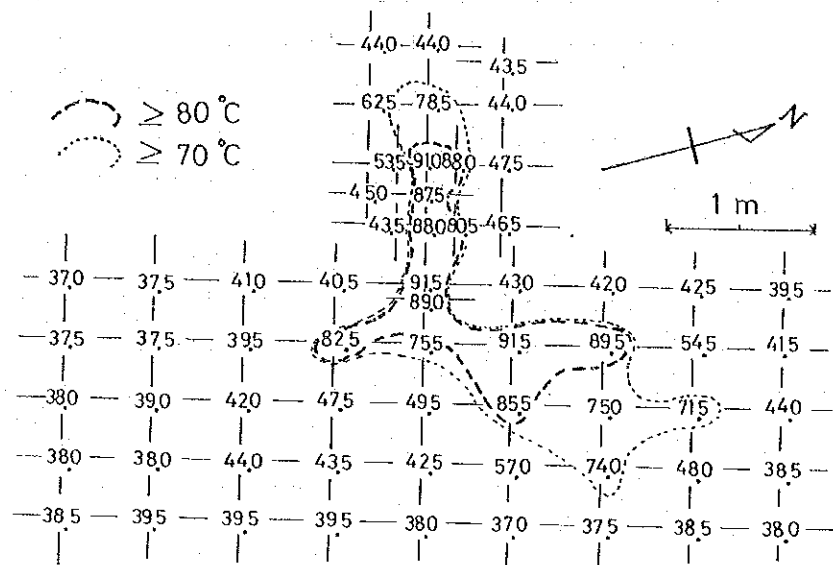 44,0 44,0
43,5
≥ 80 °C
62,5 78,5 44,0
≥ 70 °C
N
53,5 91,0 88,0 47,5
45,0 87,5
1 m
43,5 88,0 80,5 46,5
37,0 37,5 41,0 40,5 91,5 43,0 42,0 42,5 39,5
89,0
37,5 37,5 39,5 82,5 75,5 91,5 89,5 54,5 41,5
38,0 39,0 42,0 47,5 49,5 85,5 75,0 71,5 44,0
38,0 38,0 44,0 43,5 42,5 57,0 74,0 48,0 38,5
38,5 39,5 39,5 39,5 38,0 37,0 37,5 38,5 38,0